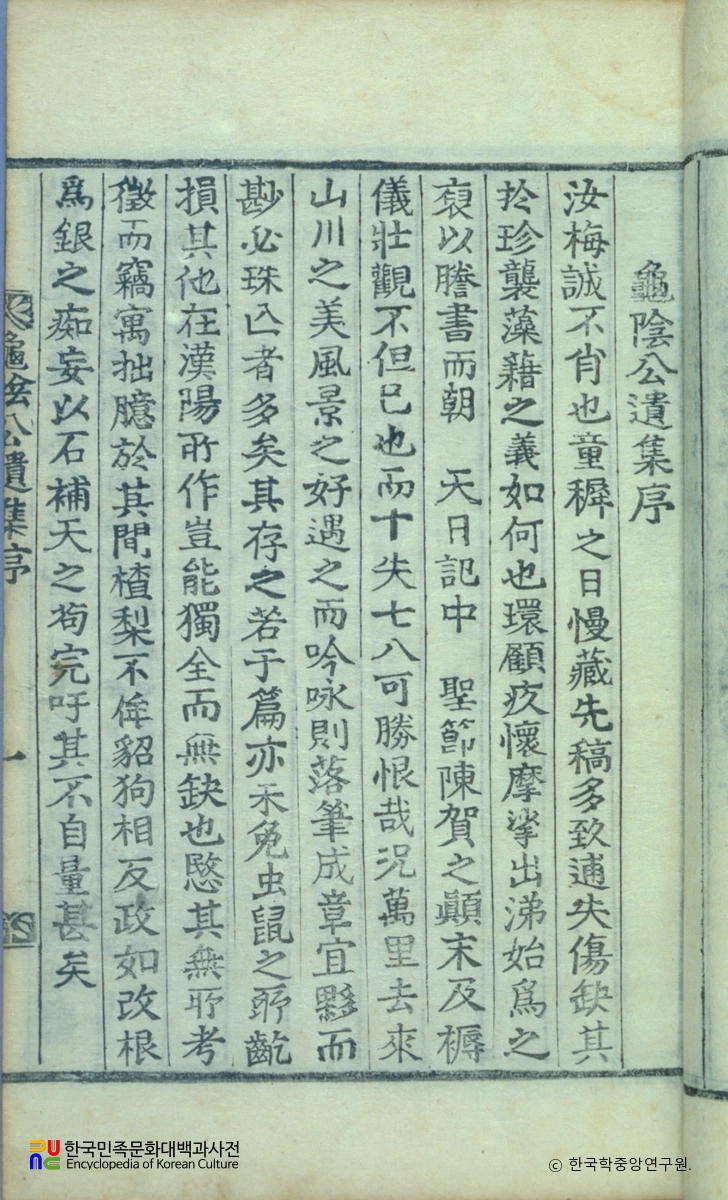 龜陰公遺集序
汝梅誠不肖也童穉之日慢藏先稿多致逋失傷缺其
於珍襲藻藉之義如何也環顧疚懷摩挲出涕始爲之
裒以謄書而朝 天日記中 聖節陳賀之顚末及褥
儀壯觀不但已也而十失七八可勝恨哉況萬里去來
山川之美風景之好遇之而吟咏則落筆成章宜夥而
尠必珠亾者多矣其存之若干篇亦未免虫鼠之所齕
損其他在漢陽所作豈能獨全而無缺也愍其無所考
徵而竊寓拙臆於其間楂梨不侔貂狗相反政如改根
爲銀之痴妄以石補天之苟完吁其不自量甚矣
龜陰公遺集序
一
한국민족문화대백과사전
Encyclopedia of Korean Culture
ⓒ 한국학중앙연구원.